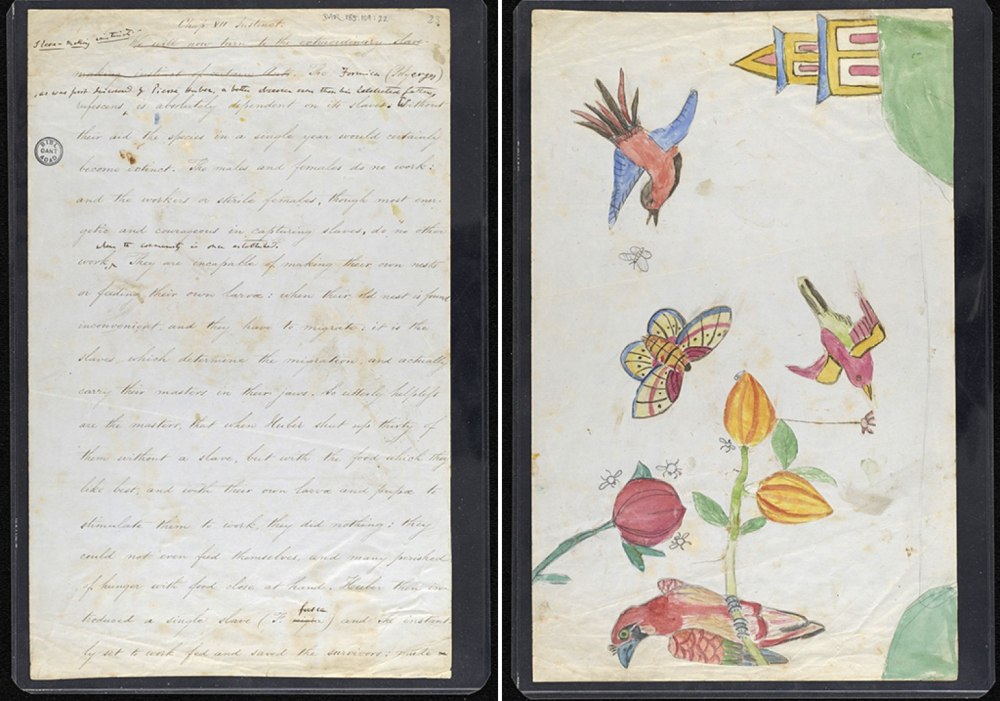 Chap VII Instinct.
Slave-making instinct.
We will now turn to the extraordinary slave-
making instinct of certain Ants. The Formica (Polyerges)
, as was first discovered by Pierre Huber, a better observer even than his celebrated father,
rufescens, is absolutely dependent on its slaves. Without
their aid the species in a single year would certainly
become extinct. The males and females do no work;
and the workers or sterile females, though most ener-
getic and courageous in capturing slaves, do no other
when the community is once established.
work. They are incapable of making their own nests
or feeding their own larvæ: when their old nest is found
inconvenient, and they have to migrate, it is the
slaves which determine the migration, and actually
carry their masters in their jaws. So utterly helpless
are the masters, that when Huber shut up thirty of
them without a slave, but with the food which they
like best, and with their own larvæ and pupæ to
stimulate them to work, they did nothing; they
could not even feed themselves, and many perished
of hunger with food close at hand. Huber then in-
fusca
troduced a single slave (F. ) and she instant-
ly set to work fed and saved the survivors; made